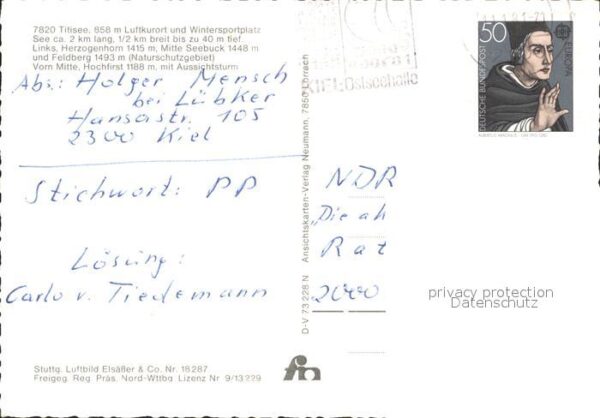 7820 Titisee. 858 m Luftkurort und Wintersportplatz
See ca. 2 km lang, 1/2 km breit bis zu 40 m tief.
Links, Herzogenhorn 1415 m, Mitte Seebuck 1448 m
und Feldberg 1493 m (Naturschutzgebiet)
Vorn Mitte, Hochfirst 1188 m, mit Aussichtsturm
Abs.: Holger Mensch
bei Lübker
Hansastr. 105
2300 Kiel
Stichwort: PP
Lösung:
Carlo v. Tiedemann
Stuttg. Luftbild Elsäßer & Co. Nr. 18287
Freigeg. Reg. Präs. Nord-Wttbg. Lizenz Nr. 9/13229
D-V 73 228 N Ansichtskarten-Verlag Neumann, 7850 Lörrach
KIEL: Ostseehalle
50
DEUTSCHE BUNDESPOST
EUROPA
NDR
"Die ak
Rat
2000
fn
privacy protection
Datenschutz